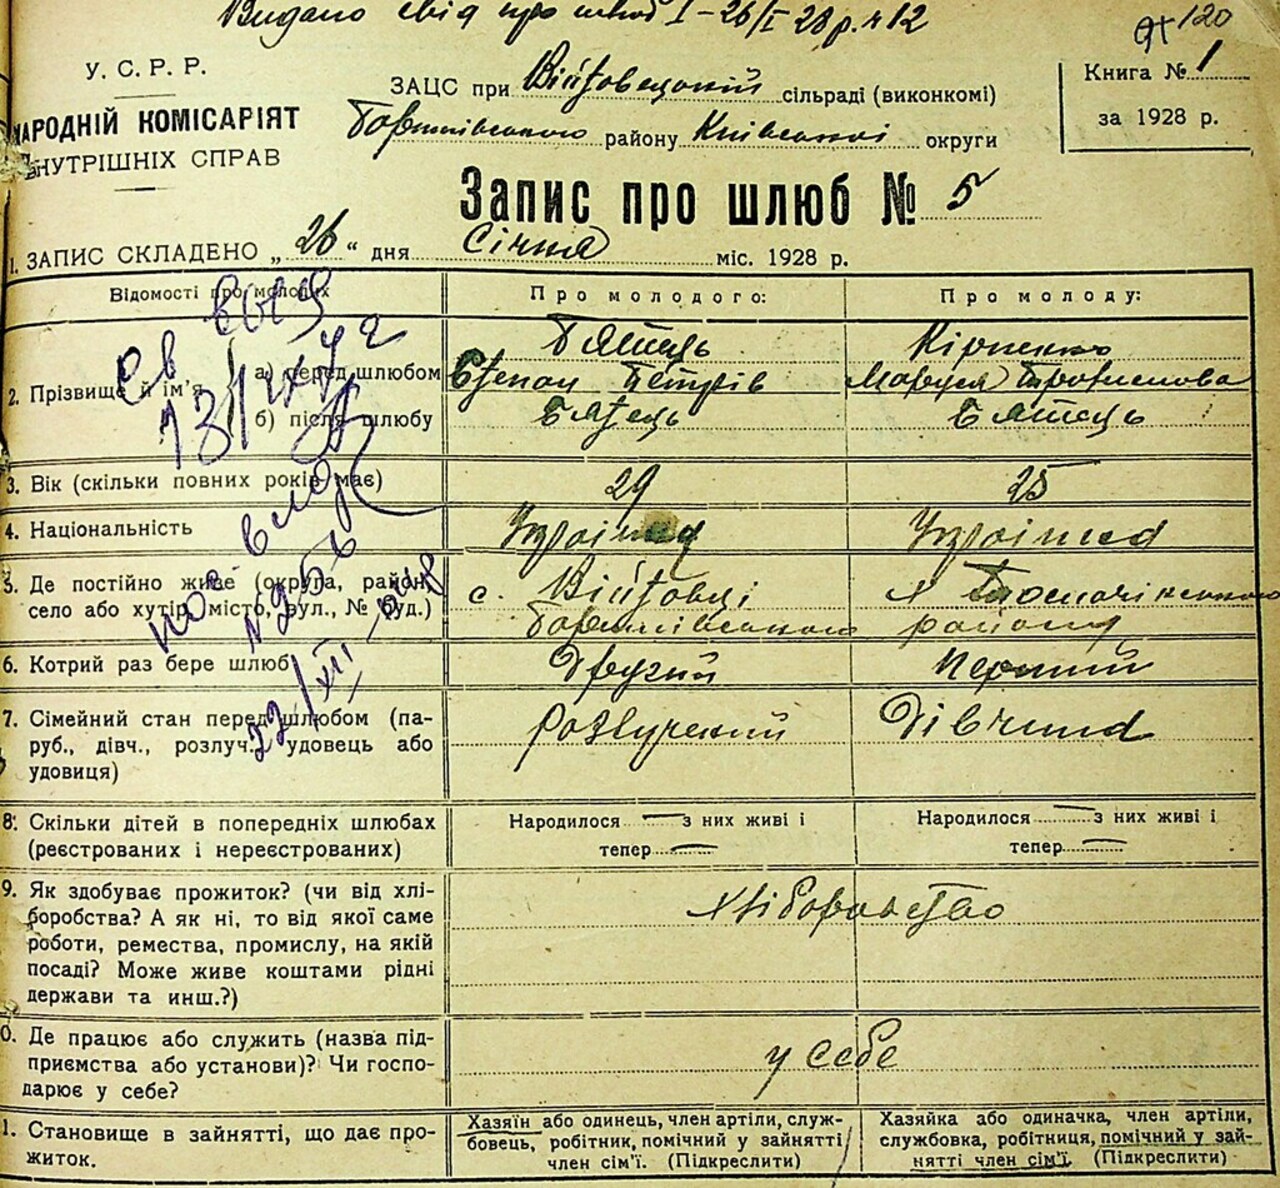 Видано свід про шлюб I–26/I 28 р. № 12
120
У. С. Р. Р.
НАРОДНІЙ КОМІСАРІЯТ
ВНУТРІШНІХ СПРАВ
ЗАЦС при Війтовецькій сільраді (виконкомі)
району Київської округи
Книга № 1
за 1928 р.
Запис про шлюб № 5
1. ЗАПИС СКЛАДЕНО „26“ дня Січня міс. 1928 р.
Відомості про молодих
Про молодого:
Про молоду:
2. Прізвище й ім'я
а) перед шлюбом
б) після шлюбу
Бятець
Степан Петрів
Бятець
Кірпенко
Маруся
Бятець
3. Вік (скільки повних років має)
29
25
4. Національність
Українец
Українка
5. Де постійно живе (округа, район,
село або хутір, місто, вул., № буд.)
с. Війтовці
району
6. Котрий раз бере шлюб
Другий
Перший
7. Сімейний стан перед шлюбом (па-
руб., дівч., розлуч., удовець або
удовиця)
Дівчина
8. Скільки дітей в попередніх шлюбах
(реєстрованих і нереєстрованих)
Народилося — з них живі і
тепер —
Народилося — з них живі і
тепер —
9. Як здобуває прожиток? (чи від хлі-
боробства? А як ні, то від якої саме
роботи, ремества, промислу, на якій
посаді? Може живе коштами рідні
держави та инш.?)
хліборобство
0. Де працює або служить (назва під-
приємства або установи)? Чи госпо-
дарює у себе?
у себе
1. Становище в зайнятті, що дає про-
житок.
Хазяїн або одинець, член артіли, служ-
бовець, робітник, помічний у зайнятті
член сім'ї. (Підкреслити)
Хазяйка або одиначка, член артіли,
службовка, робітниця, помічний у зай-
нятті член сім'ї. (Підкреслити)